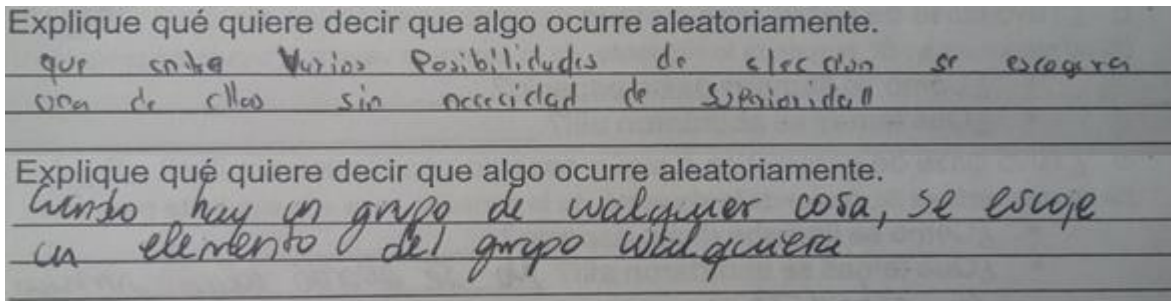 Explique qué quiere decir que algo ocurre aleatoriamente.
que entre varios Posibilidades de eleccion se escogera
una de ellas sin nececidad de Superioridad
Explique qué quiere decir que algo ocurre aleatoriamente.
Cuando hay un grupo de cualquier cosa, se escoje
un elemento del grupo cualquiera